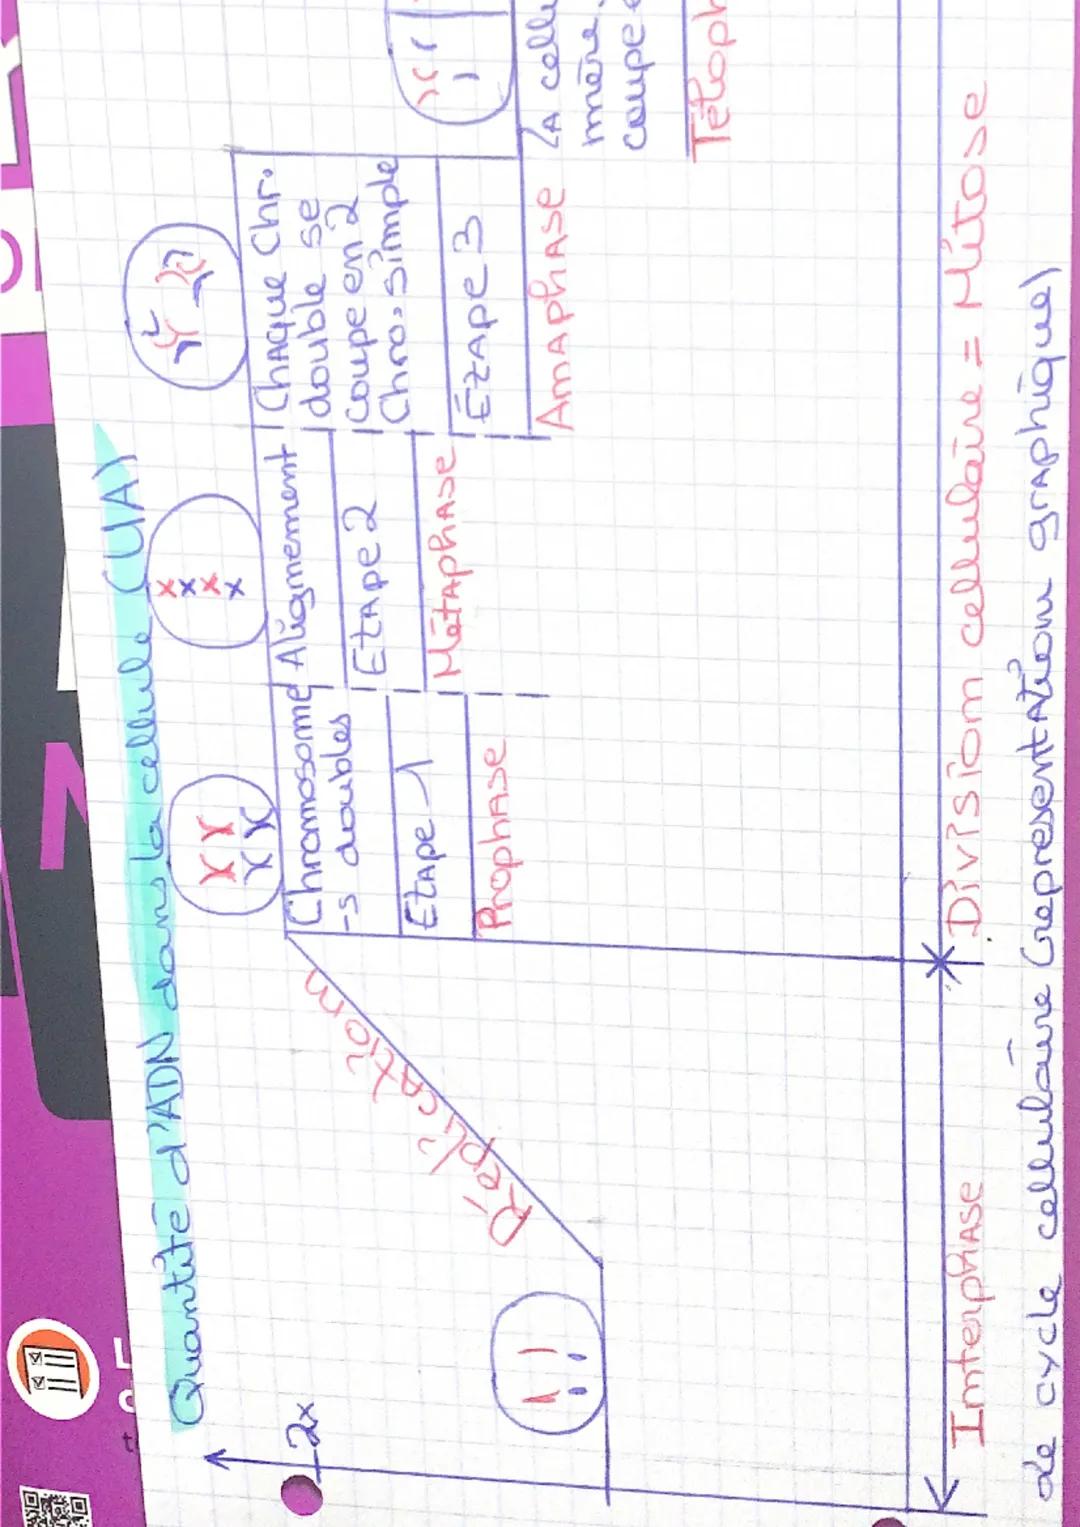 Quantité d'ADN dans la cellule (UA)
2x
Réplication
Chromosome
-s doubles
Etape 1
Prophase
Alignement
Etape 2
Métaphase
Chaque Chr.
double se
coupe en 2
Chro. simple
Étape 3
Amaphase
La cellu
mère
coupe
Téloph
Interphase
Division cellulaire = Mitose
Le cycle cellulaire (représentation graphique)